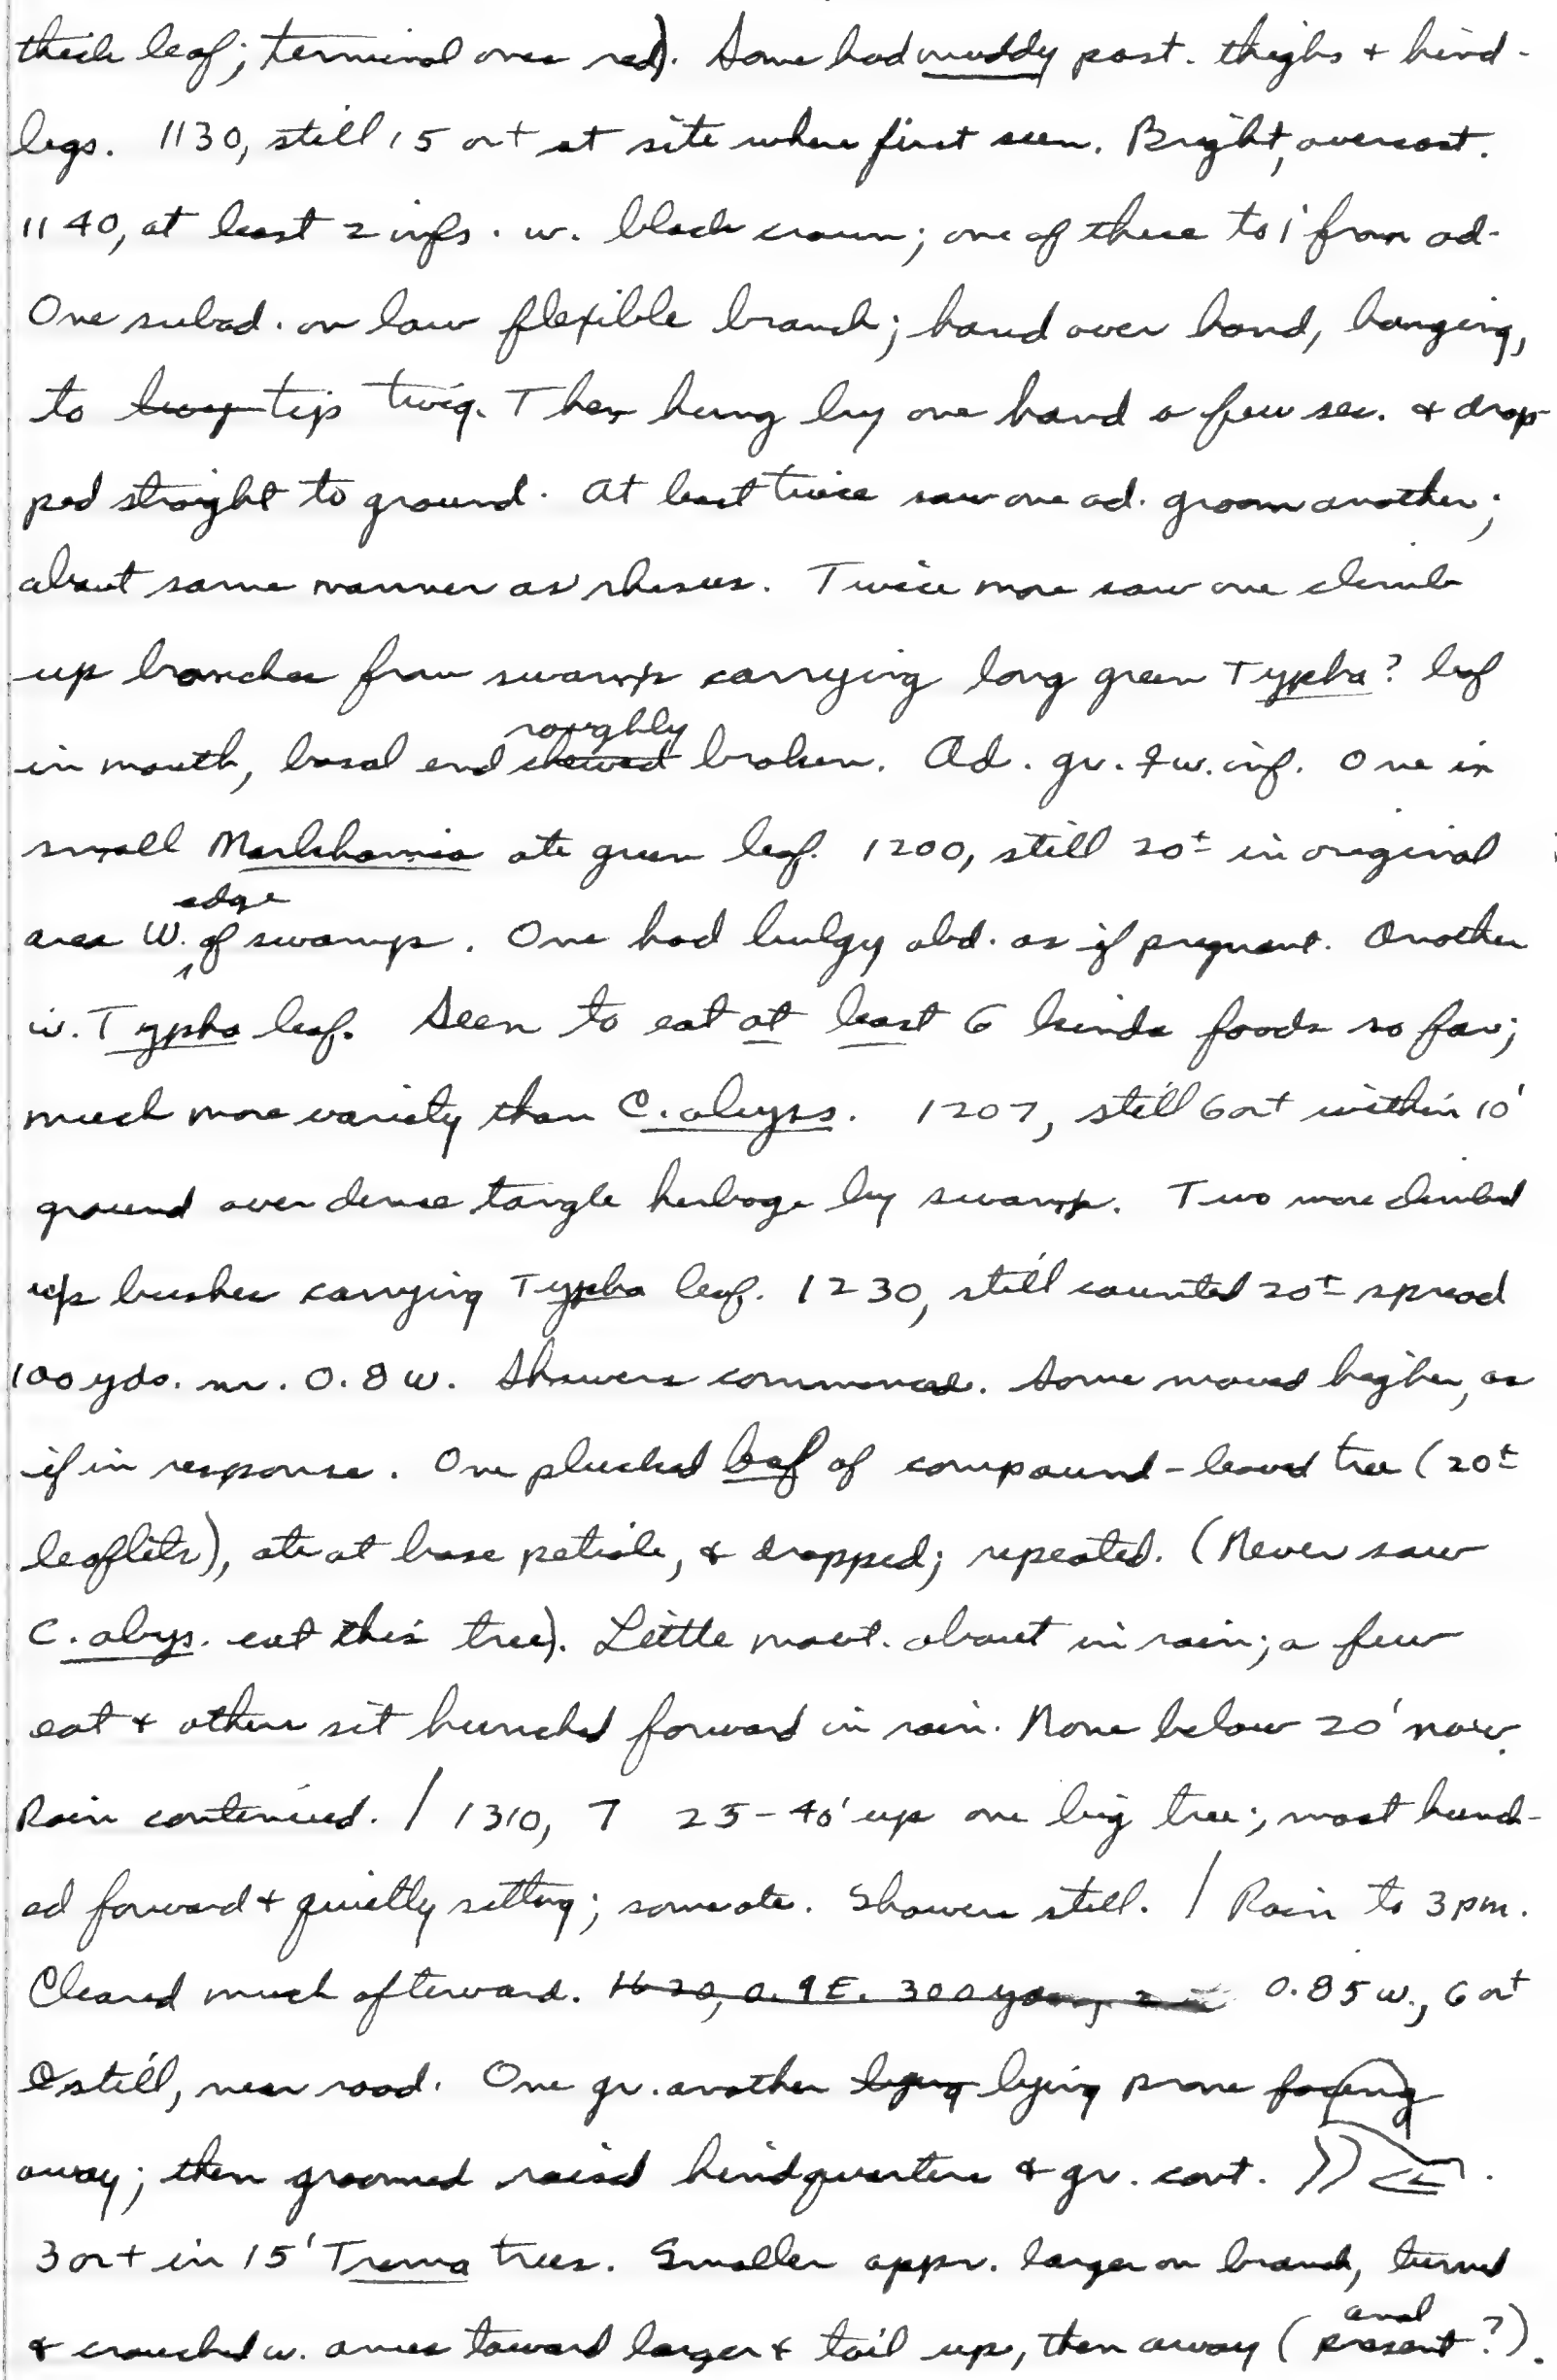 thick leaf; terminal ones red). Some had muddy post. thighs + hind-
legs. 1130, still 15 or + at site where first seen. Bright, overcast.
1140, at least 2 infs. w. black crown; one of these to 1' from ad.
One subad. on low flexible branch; hand over hand, hanging,
to tip twig. Then hung by one hand a few sec. & drop-
ped straight to ground. At least twice saw one ad. groom another;
about same manner as rhesus. Twice more saw one climb
up branches from swamp carrying long green Typha? leaf
in mouth, basal end chewed roughly broken. Ad. gr. ♀ w. inf. One in
small Markhamia ate green leaf. 1200, still 20± in original
area W. edge of swamp. One had bulgy abd. as if pregnant. Another
w. Typha leaf. Seen to eat at least 6 kinds foods so far;
much more variety than C. abyss. 1207, still 6 or + within 10'
ground over dense tangle herbage by swamp. Two more climbed
up bushes carrying Typha leaf. 1230, still counted 20± spread
100 yds. nr. 0.8 W. Showers commenced. Some moved higher, as
if in response. One plucked leaf of compound-leaved tree (20±
leaflets), ate at base petiole, & dropped; repeated. (Never saw
C. abys. eat this tree). Little movt. about in rain; a few
eat + others sit hunched forward in rain. None below 20' now.
Rain continued. / 1310, 7 25-40' up one big tree; most hunch-
ed forward + quietly sitting; some ate. Showers still. / Rain to 3 pm.
Cleared much afterward. 1620, 0.9 E. 300 yds., 0.85 W., 6 or +
still, near road. One gr. another lying lying prone facing
away; then groomed raised hindquarters & gr. cont.
3 or + in 15' Trema trees. Smaller appr. larger on branch, turned
& crouched w. anus toward larger & tail up, then away (anal present?).